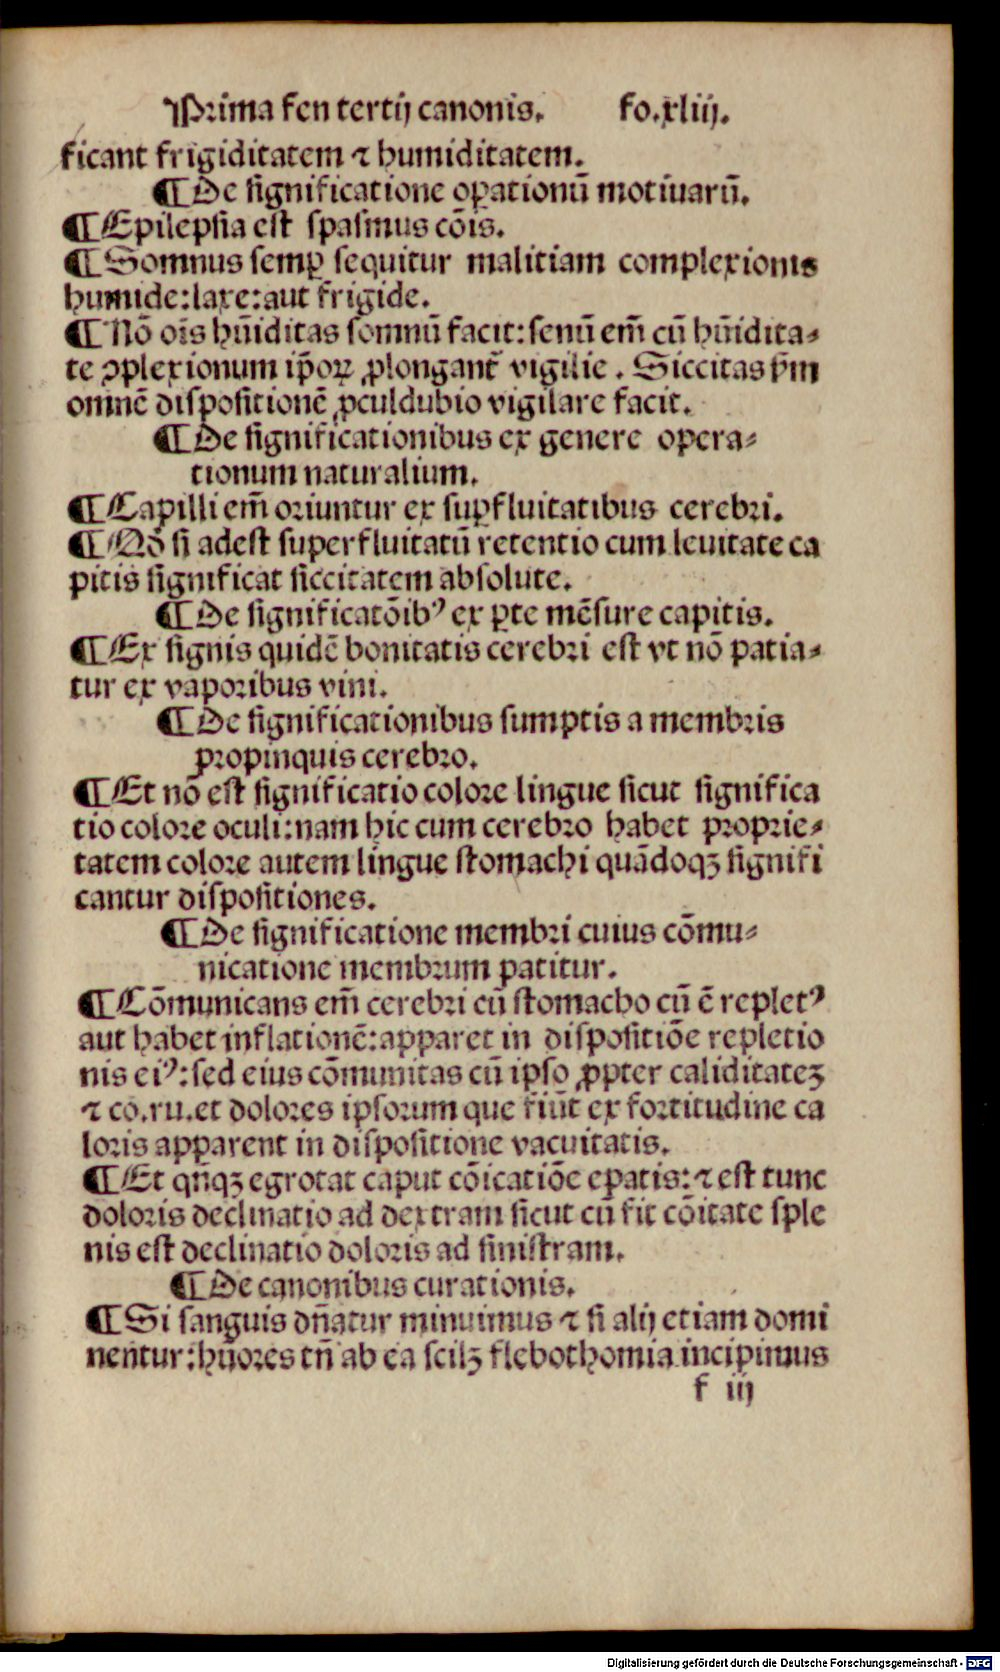 Prima fen tertij canonis. fo.xliij.
ficant frigiditatem ⁊ humiditatem.
¶ De significatione oꝑationū motiuarū.
¶ Epilepsia est spasmus cōis.
¶ Somnus semꝑ sequitur malitiam complexionis
humide:laxe:aut frigide.
¶ Nō oīs hūiditas somnū facit:senū em̄ cū hūidita-
te ꝯplexionum ip̄oꝝ ꝓlongant̄ vigilie. Siccitas
omnē dispositionē ꝓculdubio vigilare facit.
¶ De significationibus ex genere opera-
tionum naturalium.
¶ Capilli em̄ oriuntur ex suꝑfluitatibus cerebri.
¶ Nō si adest superfluitatū retentio cum leuitate ca
pitis significat siccitatem absolute.
¶ De significatōibꝰ ex ꝑte mēsure capitis.
¶ Ex signis quidē bonitatis cerebri est vt nō patia-
tur ex vaporibus vini.
¶ De significationibus sumptis a membris
propinquis cerebro.
¶ Et nō est significatio colore lingue sicut significa
tio colore oculi:nam hic cum cerebro habet proprie-
tatem colore autem lingue stomachi quādoqꝫ signifi
cantur dispositiones.
¶ De significatione membri cuius cōmu-
nicatione membrum patitur.
¶ Cōmunicans em̄ cerebri cū stomacho cū ē repletꝰ
aut habet inflationē:apparet in dispositiōe repletio
nis eiꝰ:sed eius cōmunitas cū ipso ꝓpter caliditateꝫ
⁊ co.ru.et dolores ipsorum que fiūt ex fortitudine ca
loris apparent in dispositione vacuitatis.
¶ Et qn̄qꝫ egrotat caput cōicatiōe epatis:⁊ est tunc
doloris declinatio ad dextram sicut cū fit cōitate sple
nis est declinatio doloris ad sinistram.
¶ De canonibus curationis.
¶ Si sanguis dn̄atur minuimus ⁊ si alij etiam domi
nentur:hūores tn̄ ab ea scilꝫ flebothomia incipimus
f iij
Digitalisierung gefördert durch die Deutsche Forschungsgemeinschaft - DFG